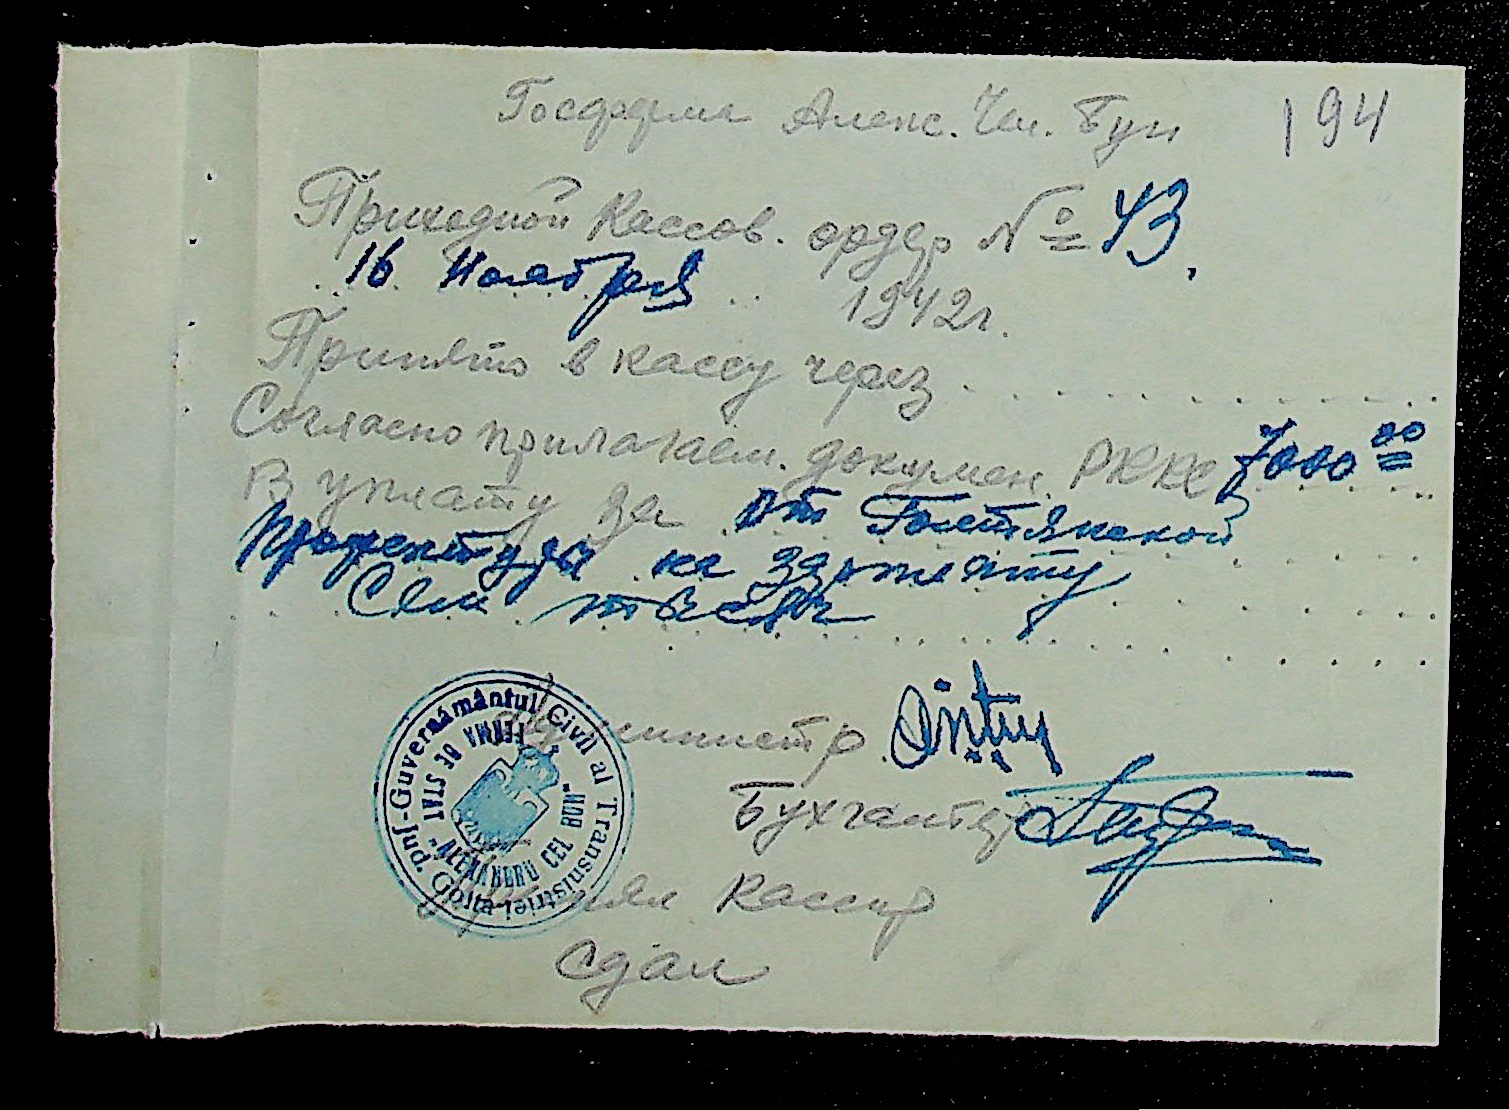 Госферма Алекс. Чел. Бун 194
Приходной Кассов. ордер № 43.
16 Ноября 1942г.
Принято в кассу через
Согласно прилагаем. докумен. РККС 7000 00
В уплату за от Голтянской
префектуры на зарплату
Сем тысяч
Администр.
Бухгалтер
Принял Кассир
Сдал
Guvernământul Civil al Transnistriei - Jud. Golta
FERMA DE STAT
"ALEXANDRU CEL BUN"